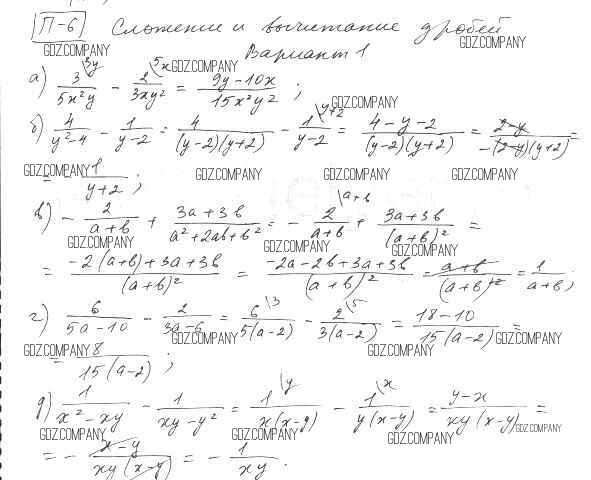 П-6 Сложение и вычитание дробей
GDZ.COMPANY GDZ.COMPANY
Вариант 1
а) 3\3y/(5x²y) - 2\5x/(3xy²) = (9y-10x)/(15x²y²) ;
GDZ.COMPANY GDZ.COMPANY
б) 4/(y²-4) - 1/(y-2) = 4/((y-2)(y+2)) - 1\y+2/(y-2) = (4-y-2)/((y-2)(y+2)) = (2-y)/(-(2-y)(y+2)) =
GDZ.COMPANY GDZ.COMPANY GDZ.COMPANY GDZ.COMPANY
= - 1/(y+2) ;
в) - 2/(a+b) + (3a+3b)/(a²+2ab+b²) = - 2\a+b/(a+b) + (3a+3b)/(a+b)² =
GDZ.COMPANY GDZ.COMPANY GDZ.COMPANY
= (-2(a+b)+3a+3b)/(a+b)² = (-2a-2b+3a+3b)/(a+b)² = (a+b)/(a+b)² = 1/(a+b) ;
г) 6/(5a-10) - 2/(3a-6) = 6\3/(5(a-2)) - 2\5/(3(a-2)) = (18-10)/(15(a-2)) =
GDZ.COMPANY GDZ.COMPANY GDZ.COMPANY GDZ.COMPANY
= 8/(15(a-2)) ;
д) 1/(x²-xy) - 1/(xy-y²) = 1\y/(x(x-y)) - 1\x/(y(x-y)) = (y-x)/(xy(x-y)) =
GDZ.COMPANY GDZ.COMPANY GDZ.COMPANY GDZ.COMPANY
= - (x-y)/(xy(x-y)) = - 1/(xy) .